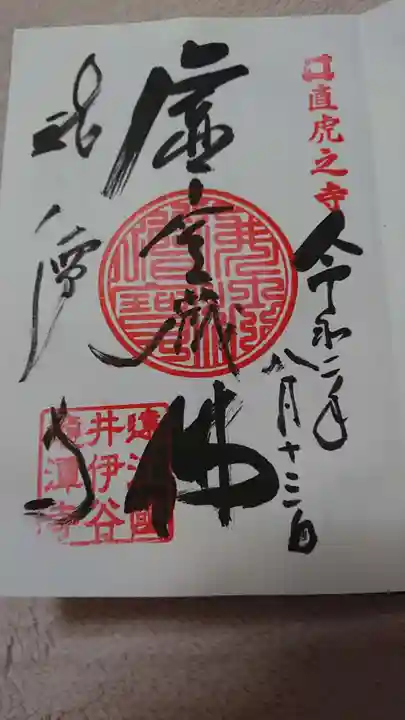 直虎之寺
令和二年
八月十三日
虚空蔵佛
龍潭寺
遠江國
井伊谷
龍潭寺